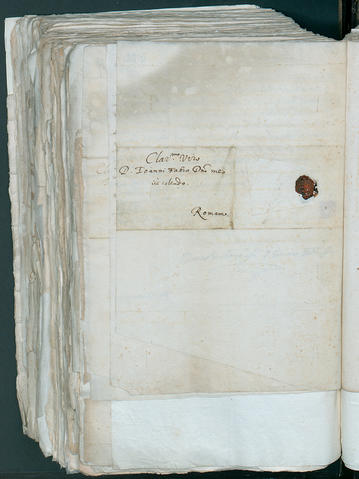 Clar.mo Viro
D. Ioanni Fabro Dno meo
colendo.
Romam